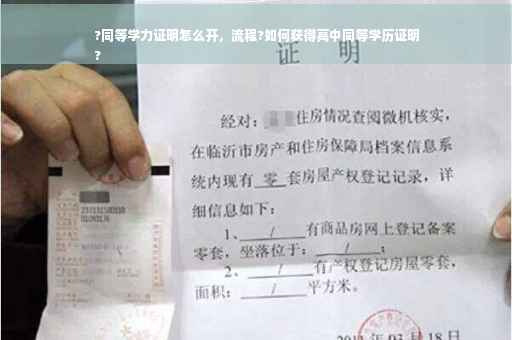 ?同等学力证明怎么开，流程?如何获得高中同等学历证明
?
证 明
经对：住房情况查阅微机核实，
在临沂市房产和住房保障局档案信息系
统内现有 零 套房屋产权登记记录，详
细信息如下：
1、 / 有商品房网上登记备案
零套，坐落位于： / ；
2、 / 有产权登记房屋零套，
面积： / 平方米。
月 18 日